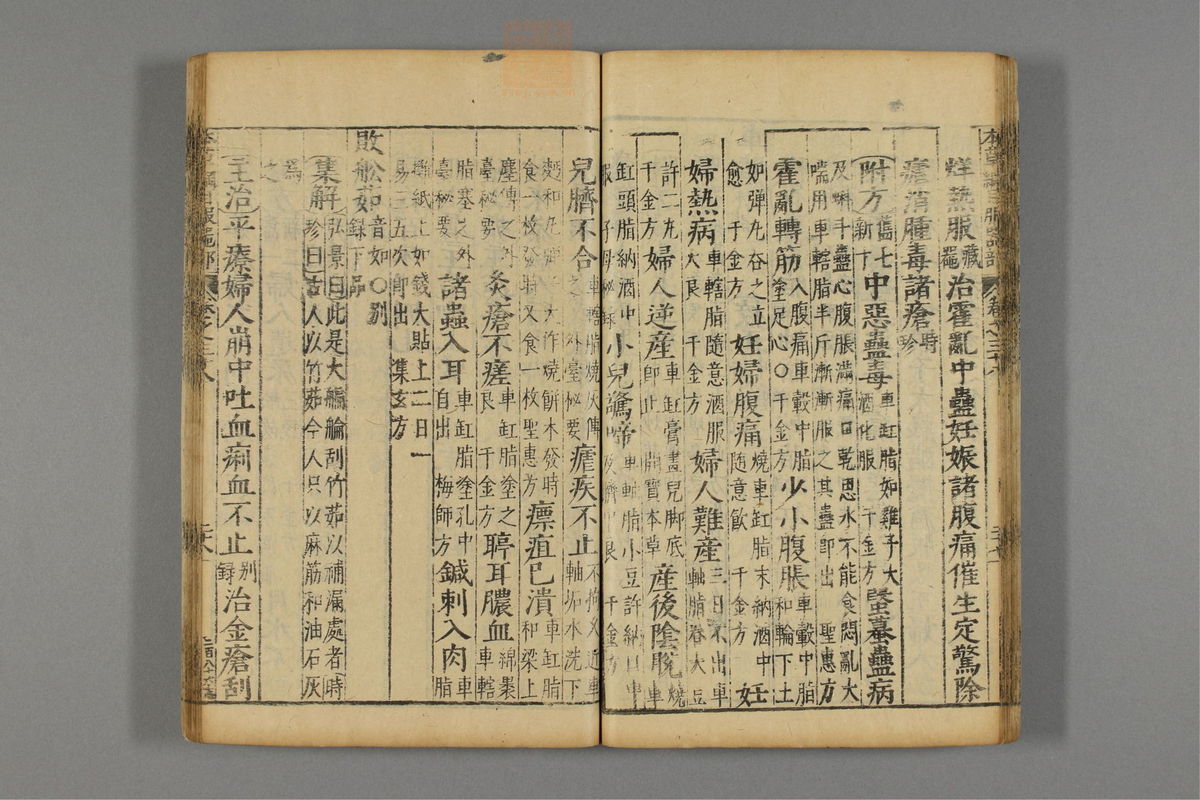 本草綱目服器部 卷之三十八
烊熱服藏器治霍亂中蠱妊娠諸腹痛催生定驚除
瘧消腫毒諸瘡時珍
附方舊七新十中惡蠱毒車缸脂如雞子大酒化服千金方蝥蟇蠱病
及蝌斗蠱心腹脹滿痛口乾思水不能食悶亂大喘用車轄脂半斤漸漸服之其蠱即出聖惠方
霍亂轉筋入腹痛車轂中脂塗足心〇千金方少小腹脹車轂中脂和輪下土
如彈丸吞之立愈千金方妊婦腹痛燒車缸脂末納酒中隨意飲千金方妊
婦熱病車轄脂隨意酒服大良千金方婦人難產三日不出車軸脂吞大豆
許二丸千金方婦人逆產車缸膏畫兒脚底即止開寶本草產後陰脫燒車
缸頭脂納酒中服子母秘錄小兒驚啼車軸脂小豆許納口中及臍中良千金方
兒臍不合車轄脂燒灰傅之外臺秘要瘧疾不止不拘久近車軸垢水洗下
麪和丸彈子大作燒餅未發時食一枚發時又食一枚聖惠方瘭疽巳潰車缸脂和梁上
塵傅之外臺秘要灸瘡不瘥車缸脂塗之良千金方聤耳膿血綿裹車轄
脂塞之外臺秘要諸蟲入耳車缸脂塗孔中自出梅師方鍼刺入肉車脂
攤紙上如錢大貼上二日一易三五次即出集玄方
敗舩茹音如〇别錄下品
集解弘景曰此是大艑刮竹茹以補漏處者時珍曰古人以竹茹今人只以麻筋和油石灰
為之
主治平療婦人崩中吐血痢血不止别錄治金瘡刮